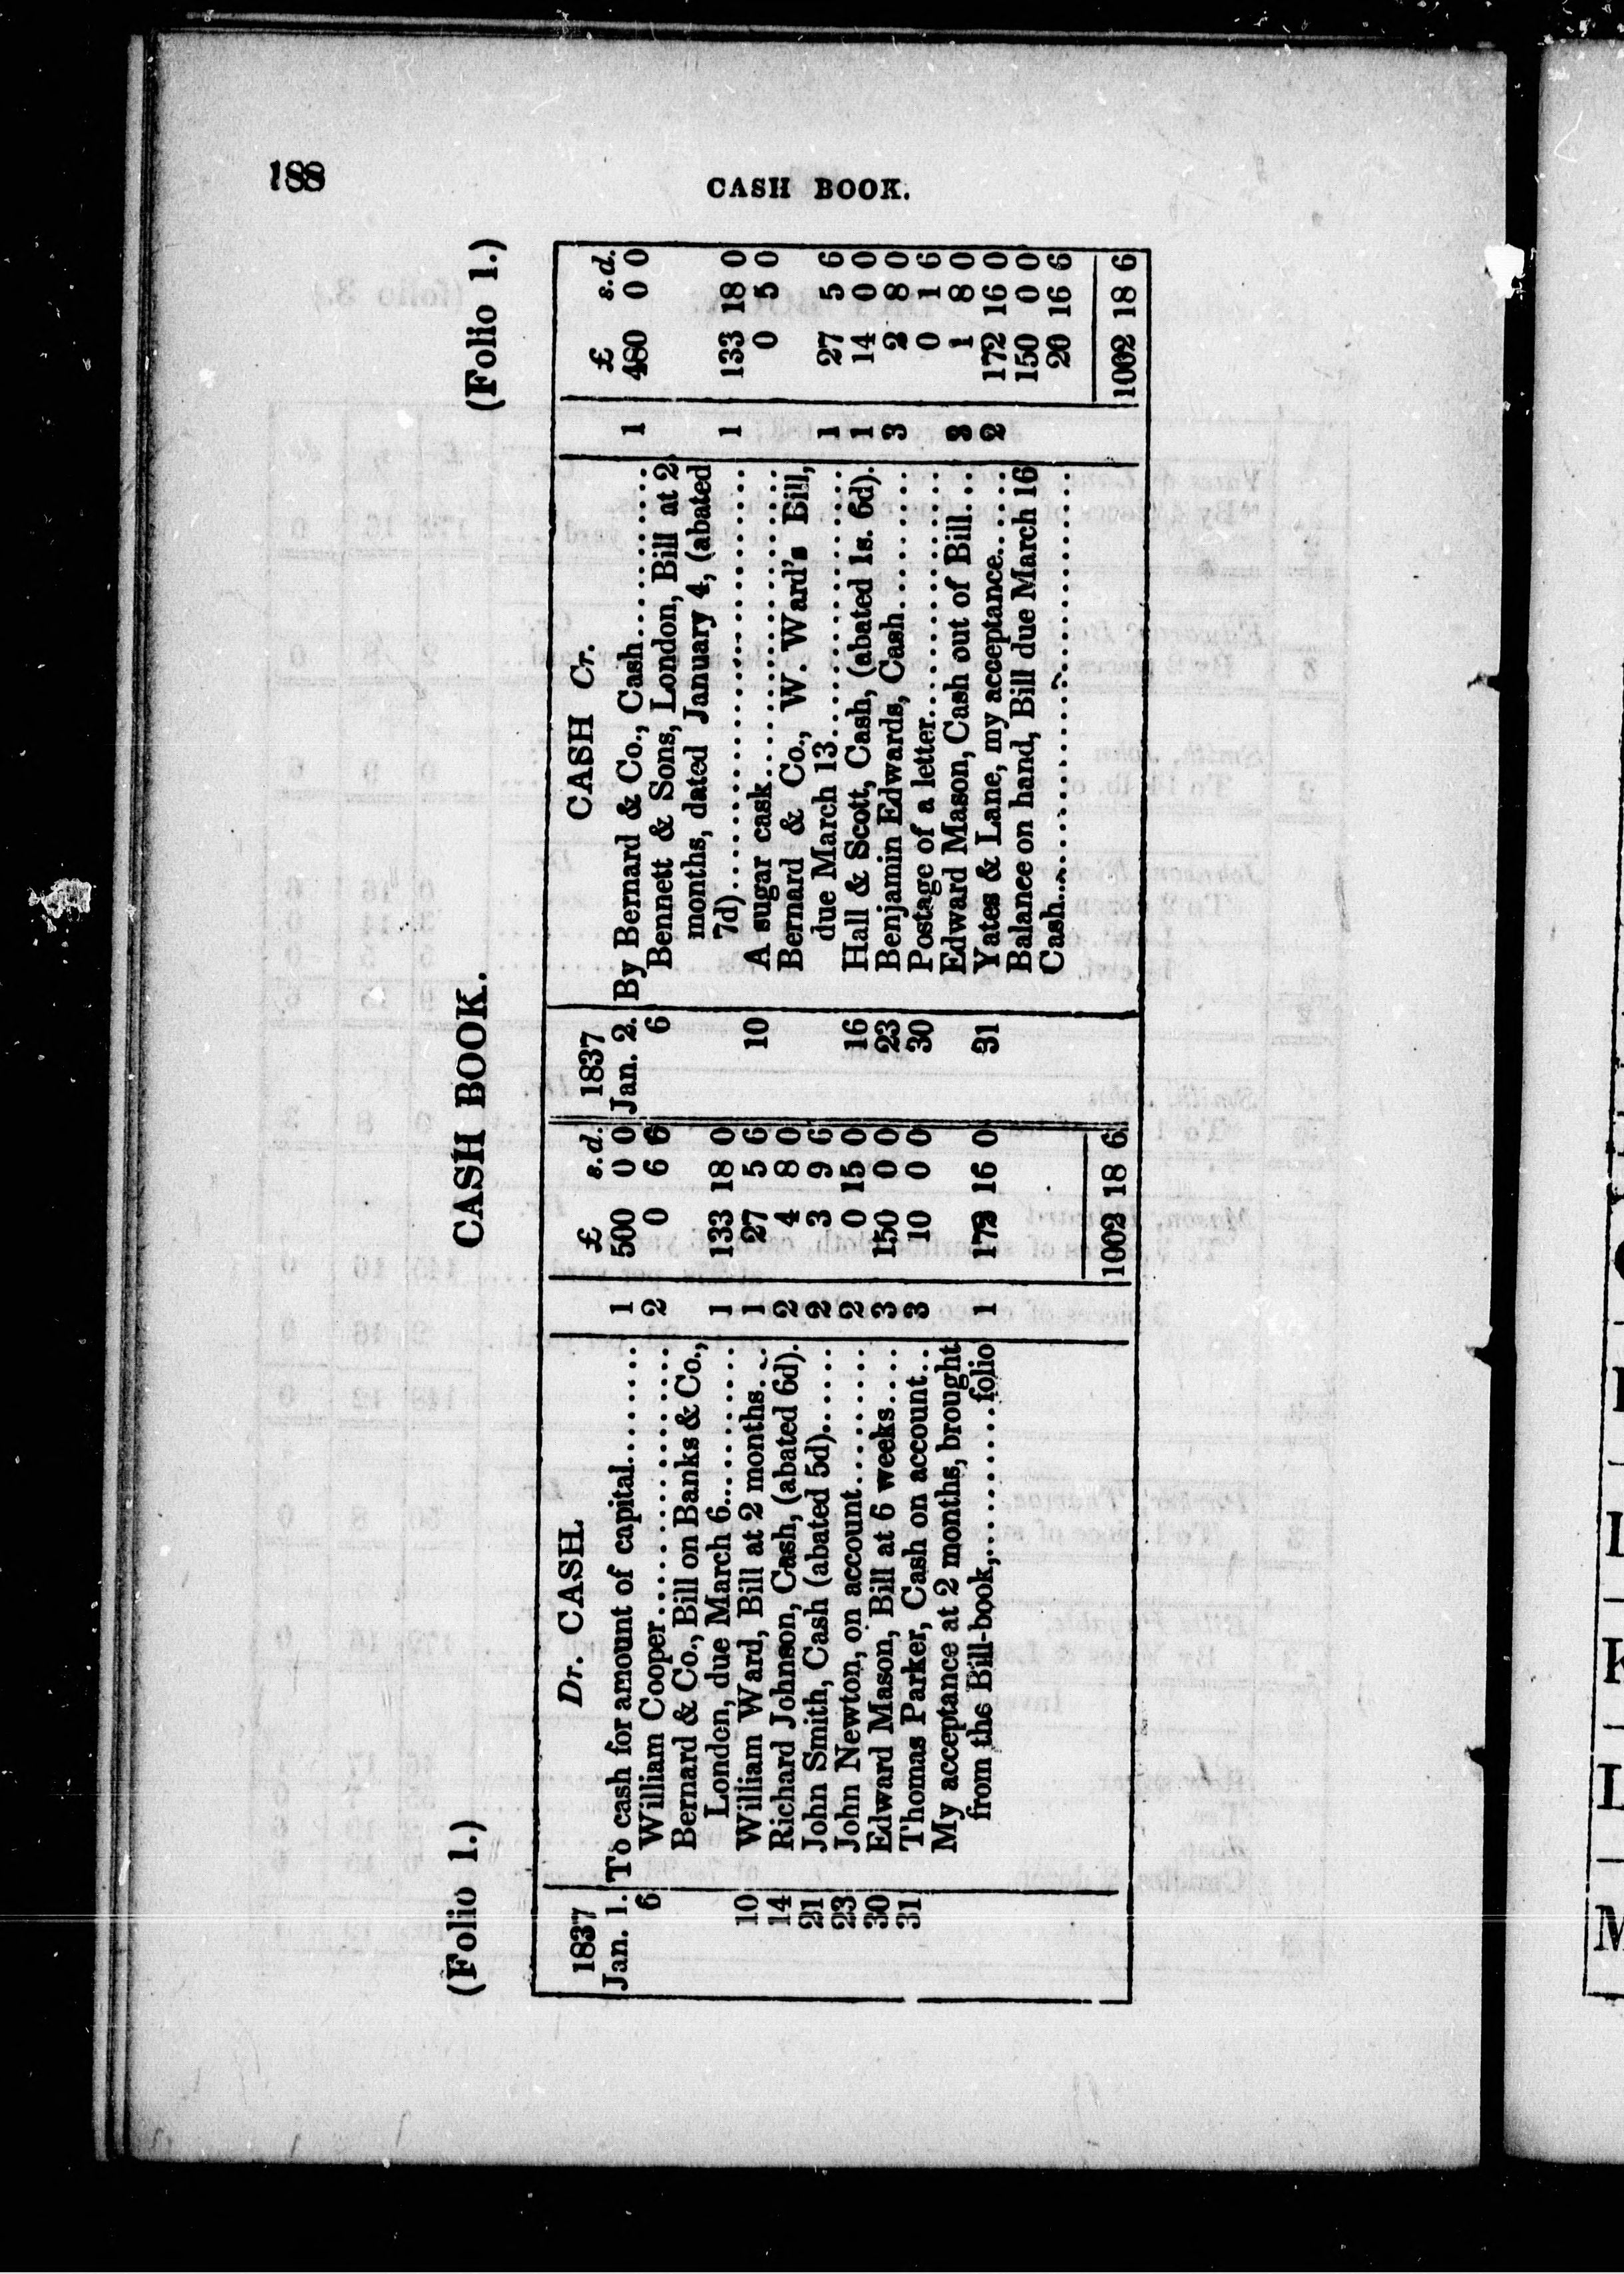 188
CASH BOOK.
CASH BOOK.
(Folio 1.)
(Folio 1.)
Dr. CASH.
1837 £ s. d.
Jan. 1. To cash for amount of capital........ 1 500 0 0
6 William Cooper.................. 2 0 6 6
Bernard & Co., Bill on Banks & Co.,
London, due March 6.......... 1 133 18 0
10 William Ward, Bill at 2 months... 1 27 5 6
14 Richard Johnson, Cash, (abated 6d). 2 4 8 0
21 John Smith, Cash (abated 5d)...... 2 3 9 6
23 John Newton, on account........ 2 0 15 0
30 Edward Mason, Bill at 6 weeks.... 3 150 0 0
31 Thomas Parker, Cash on account... 3 10 0 0
My acceptance at 2 months, brought
from the Bill-book,..........folio 1 172 16 0
1002 18 6
CASH Cr.
1837 £ s. d.
Jan. 2. By Bernard & Co., Cash.......... 1 480 0 0
6 Bennett & Sons, London, Bill at 2
months, dated January 4, (abated
7d)........................ 1 133 18 0
10 A sugar cask................ 0 5 0
Bernard & Co., W. Ward's Bill,
due March 13................ 1 27 5 6
16 Hall & Scott, Cash, (abated 1s. 6d). 1 14 0 0
23 Benjamin Edwards, Cash........ 3 2 8 0
30 Postage of a letter.............. 0 1 6
Edward Mason, Cash out of Bill.... 3 1 8 0
31 Yates & Lane, my acceptance...... 2 172 16 0
Balance on hand, Bill due March 16 150 0 0
Cash........................ 20 16 6
1002 18 6